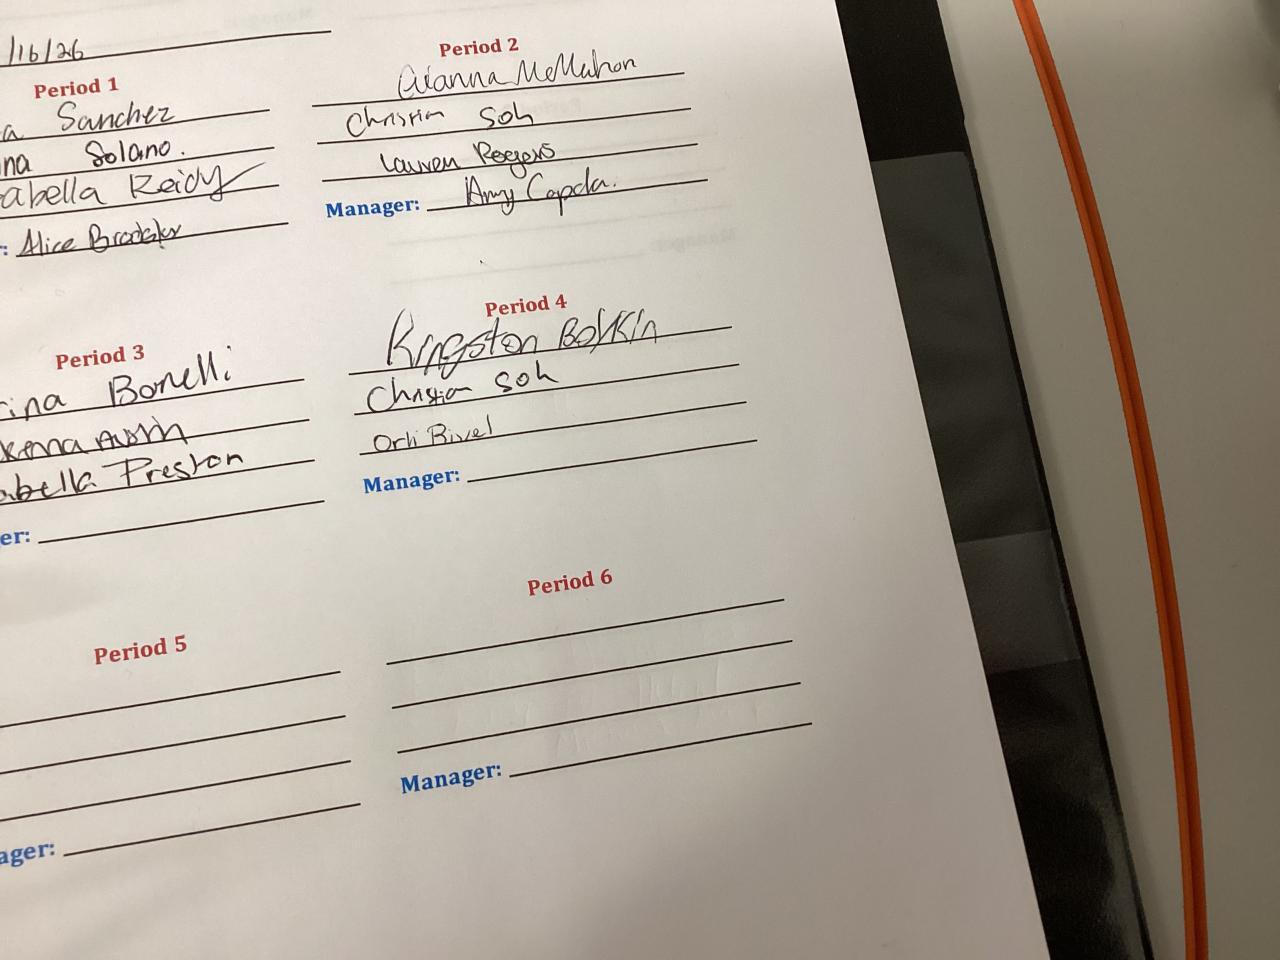 /16/26
Period 1
a Sanchez
na Solano.
abella Reidy
: Alice
Period 2
Gianna McMahon
Christian Soh
Lauren Rogers
Manager: Amy
Period 3
rina Bonelli
kenna Austin
abella Preston
er:
Period 4
Kingston Boykin
Christian Soh
Orli
Manager:
Period 5
ager:
Period 6
Manager: